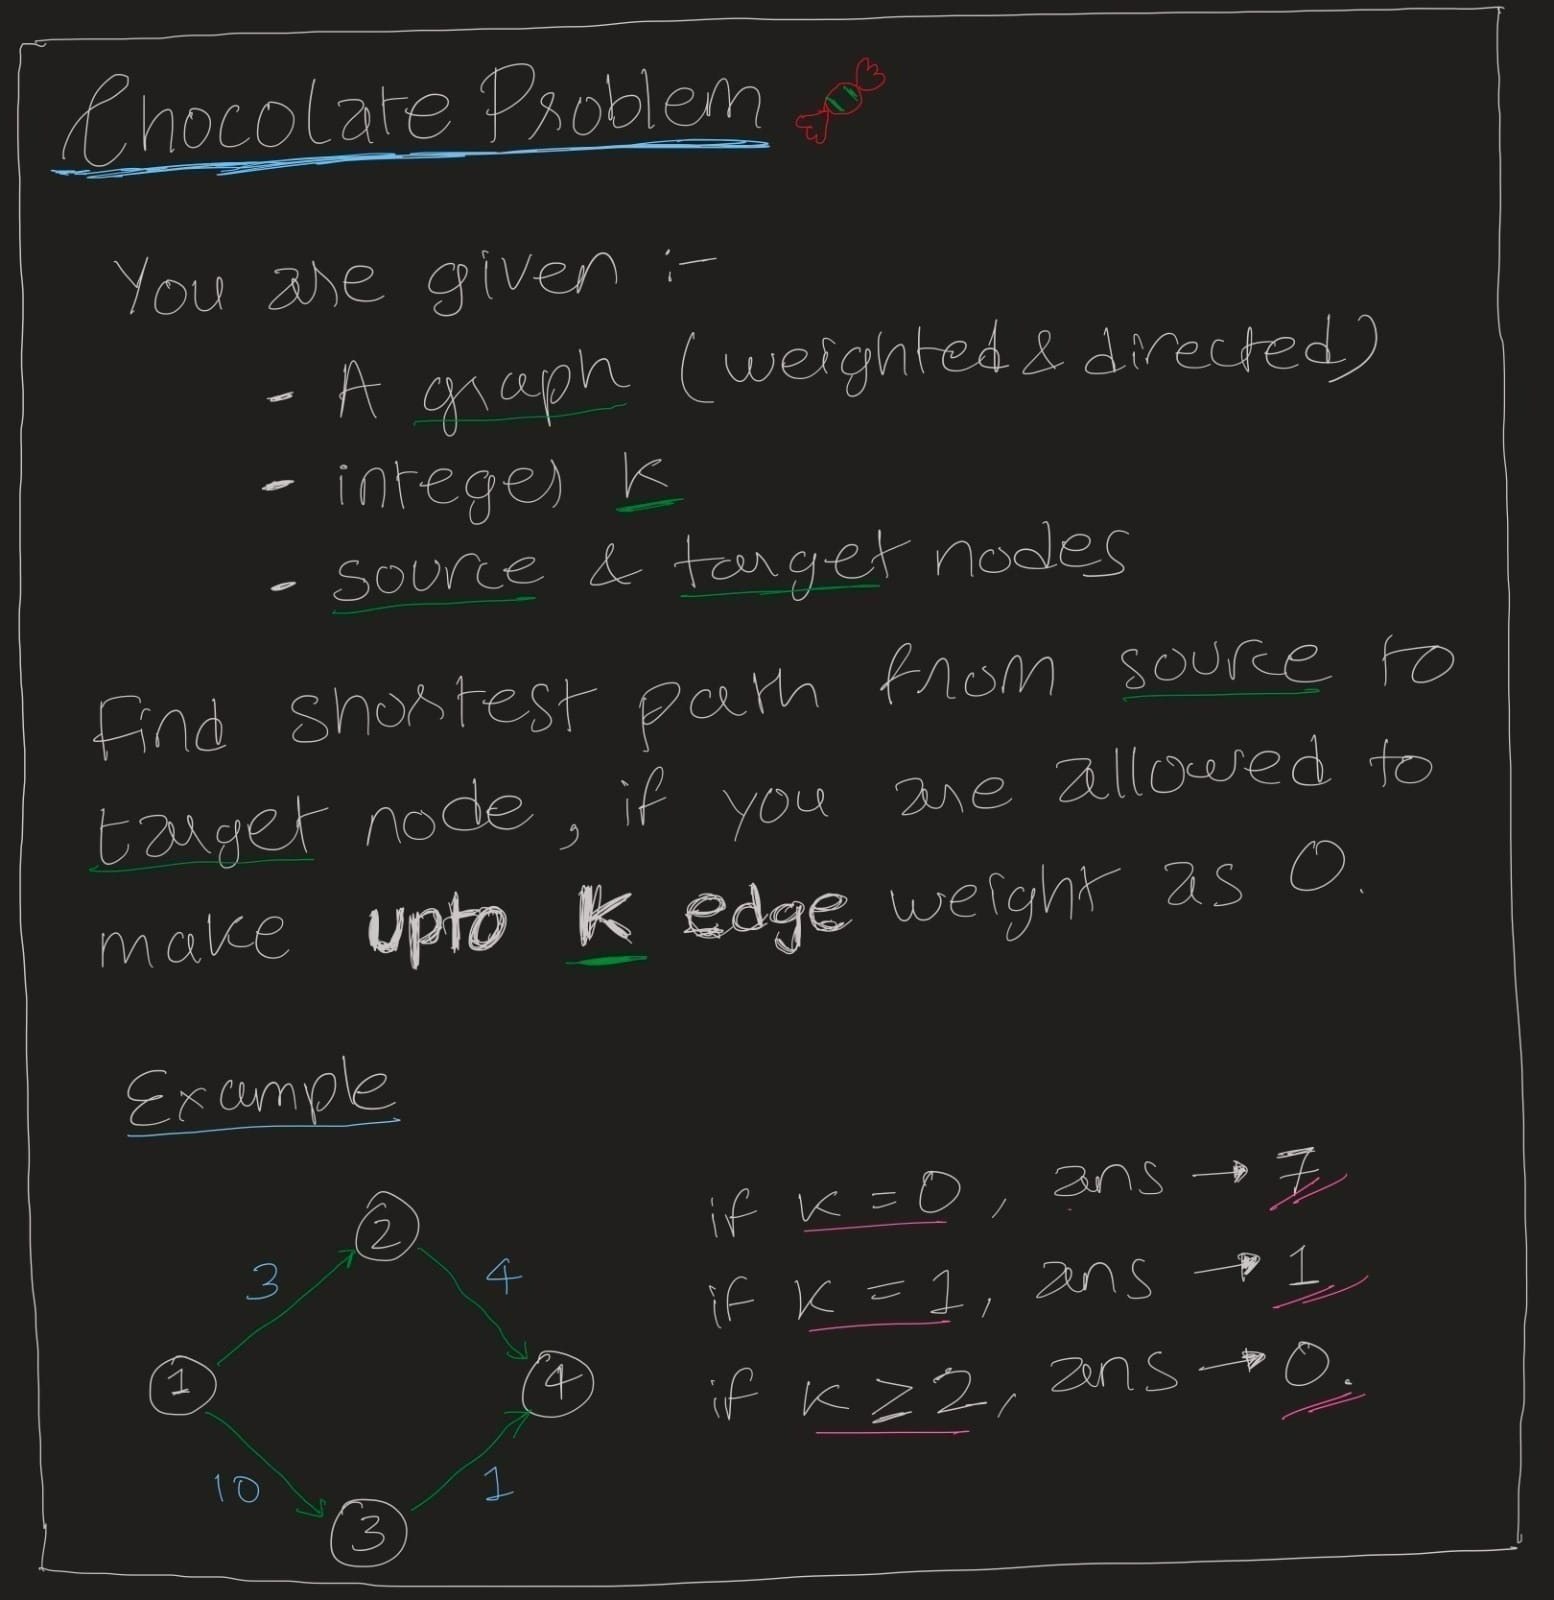 Chocolate Problem
You are given :-
- A graph (weighted & directed)
- integer K
- source & target nodes
Find shortest path from source to
target node, if you are allowed to
make upto K edge weight as 0.
Example
2
3
4
1
4
10
1
3
if K = 0, ans → 7
if K = 1, ans → 1
if K ≥ 2, ans → 0.